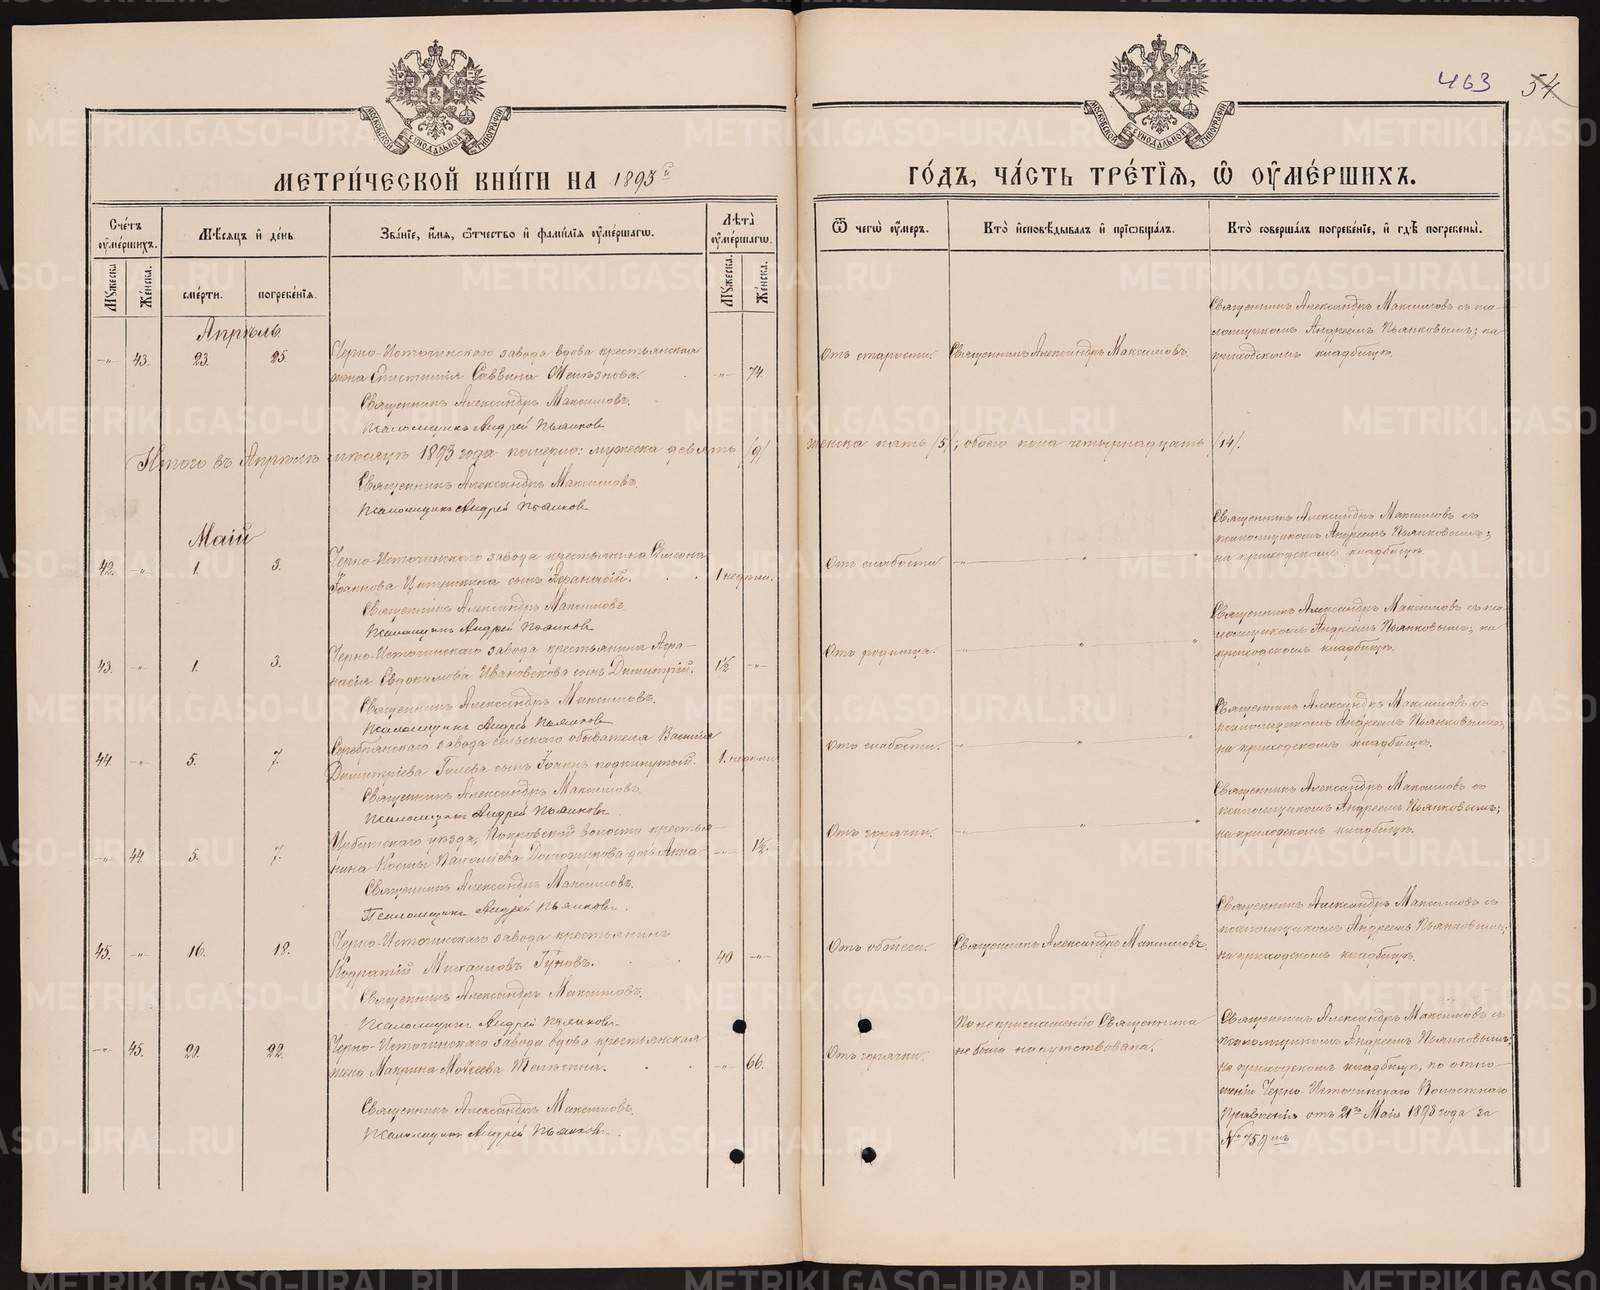 463 54
МОСКОВСКОЙ СѴНОДАЛЬНОЙ ТИПОГРАФІИ
МОСКОВСКОЙ СѴНОДАЛЬНОЙ ТИПОГРАФІИ
МЕТРИ́ЧЕСКОЙ КНИ́ГИ НА 1893й
ГО́ДЪ, ЧА́СТЬ ТРЕ́ТІѦ, Ѡ҆ ОУ҆МЕ́РШИХЪ.
Сче́тъ оу҆ме́ршихъ.
Мѣ́сѧцъ и҆ де́нь
Зва́ніе, и҆́мѧ, ѻ҆́тчество и҆ фами́лїѧ оу҆ме́ршагѡ.
Лѣ́та оу҆ме́ршагѡ.
Ѿ чегѡ̀ оу҆́меръ.
Кто̀ и҆сповѣ́дывалъ и҆ прїѡбща́лъ.
Кто̀ соверша́лъ погребе́нїе, и҆ гдѣ̀ погребены̀.
Мꙋ́жеска.
Же́нска.
сме́рти.
погребе́нїѧ.
Мꙋ́жеска.
Же́нска.
Апрѣль
-"- 43. 23. 25. Черно-Источинскаго завода вдова крестьянская
жена Епистимія Саввина
-"- 74.
Священникъ Александръ Максимовъ.
Псаломщикъ Андрей Пьянковъ
Отъ старости.
Священникъ Александръ Максимовъ.
Священникъ Александръ Максимовъ съ пса-
ломщикомъ Андреемъ Пьянковымъ; на
приходскомъ кладбищѣ.
Итого въ Апрѣлѣ мѣсяцѣ 1893 года померло: мужеска девять /9/
женска пять /5/; обоего пола четырнадцать /14/.
Священникъ Александръ Максимовъ.
Псаломщикъ Андрей Пьянковъ
Маій
42. -"- 1. 3. Черно-Источинскаго завода крестьянина Симеона
Іоаннова сынъ Афанасій.
1 недѣли.
Священникъ Александръ Максимовъ.
Псаломщикъ Андрей Пьянковъ
Отъ слабости
Священникъ Александръ Максимовъ съ
псаломщикомъ Андреемъ Пьянковымъ;
на приходскомъ кладбищѣ.
43. -"- 1. 3. Черно-Источинскаго завода крестьянина Афа-
насія Евдокимова Ивановскова сынъ Димитрій.
1½ -"-
Священникъ Александръ Максимовъ.
Псаломщикъ Андрей Пьянковъ
Отъ родимца.
Священникъ Александръ Максимовъ съ пса-
ломщикомъ Андреемъ Пьянковымъ; на
приходскомъ кладбищѣ.
44. -"- 5. 7. Серебрянскаго завода сельскаго обывателя Василія
Димитріева Гилева сынъ Іоаннъ подкинутый.
1. недѣли
Священникъ Александръ Максимовъ.
Псаломщикъ Андрей Пьянковъ.
Отъ слабости.
Священникъ Александръ Максимовъ съ
псаломщикомъ Андреемъ Пьянковымъ;
на приходскомъ кладбищѣ.
-"- 44. 5. 7. Ирбитскаго уѣзда, Покровской Волости крестья-
нина Космы Пахоміева дочь Анна
-"- 1½.
Священникъ Александръ Максимовъ.
Псаломщикъ Андрей Пьянковъ.
Отъ горячки.
Священникъ Александръ Максимовъ съ
псаломщикомъ Андреемъ Пьянковымъ;
на приходскомъ кладбищѣ.
45. -"- 16. 18. Черно-Источинскаго завода крестьянинъ
Кодратій Михаиловъ Гуновъ.
40 -"-
Священникъ Александръ Максимовъ.
Псаломщикъ Андрей Пьянковъ.
Отъ обжега.
Священникъ Александръ Максимовъ.
Священникъ Александръ Максимовъ съ
псаломщикомъ Андреемъ Пьянковымъ;
на приходскомъ кладбищѣ.
-"- 45. 20. 22. Черно-Источинскаго завода вдова крестьянская
жена Макрина Моѵсеева
-"- 66.
Священникъ Александръ Максимовъ.
Псаломщикъ Андрей Пьянковъ.
Отъ горячки.
По не приглашенію Священника
не была напутствована.
Священникъ Александръ Максимовъ съ
псаломщикомъ Андреемъ Пьянковымъ;
на приходскомъ кладбищѣ, по отно-
шенію Черно-Источинскаго Волостнаго
Правленія отъ 21го Маія 1893 года за
№ 759мъ
METRIKI.GASO-URAL.RU